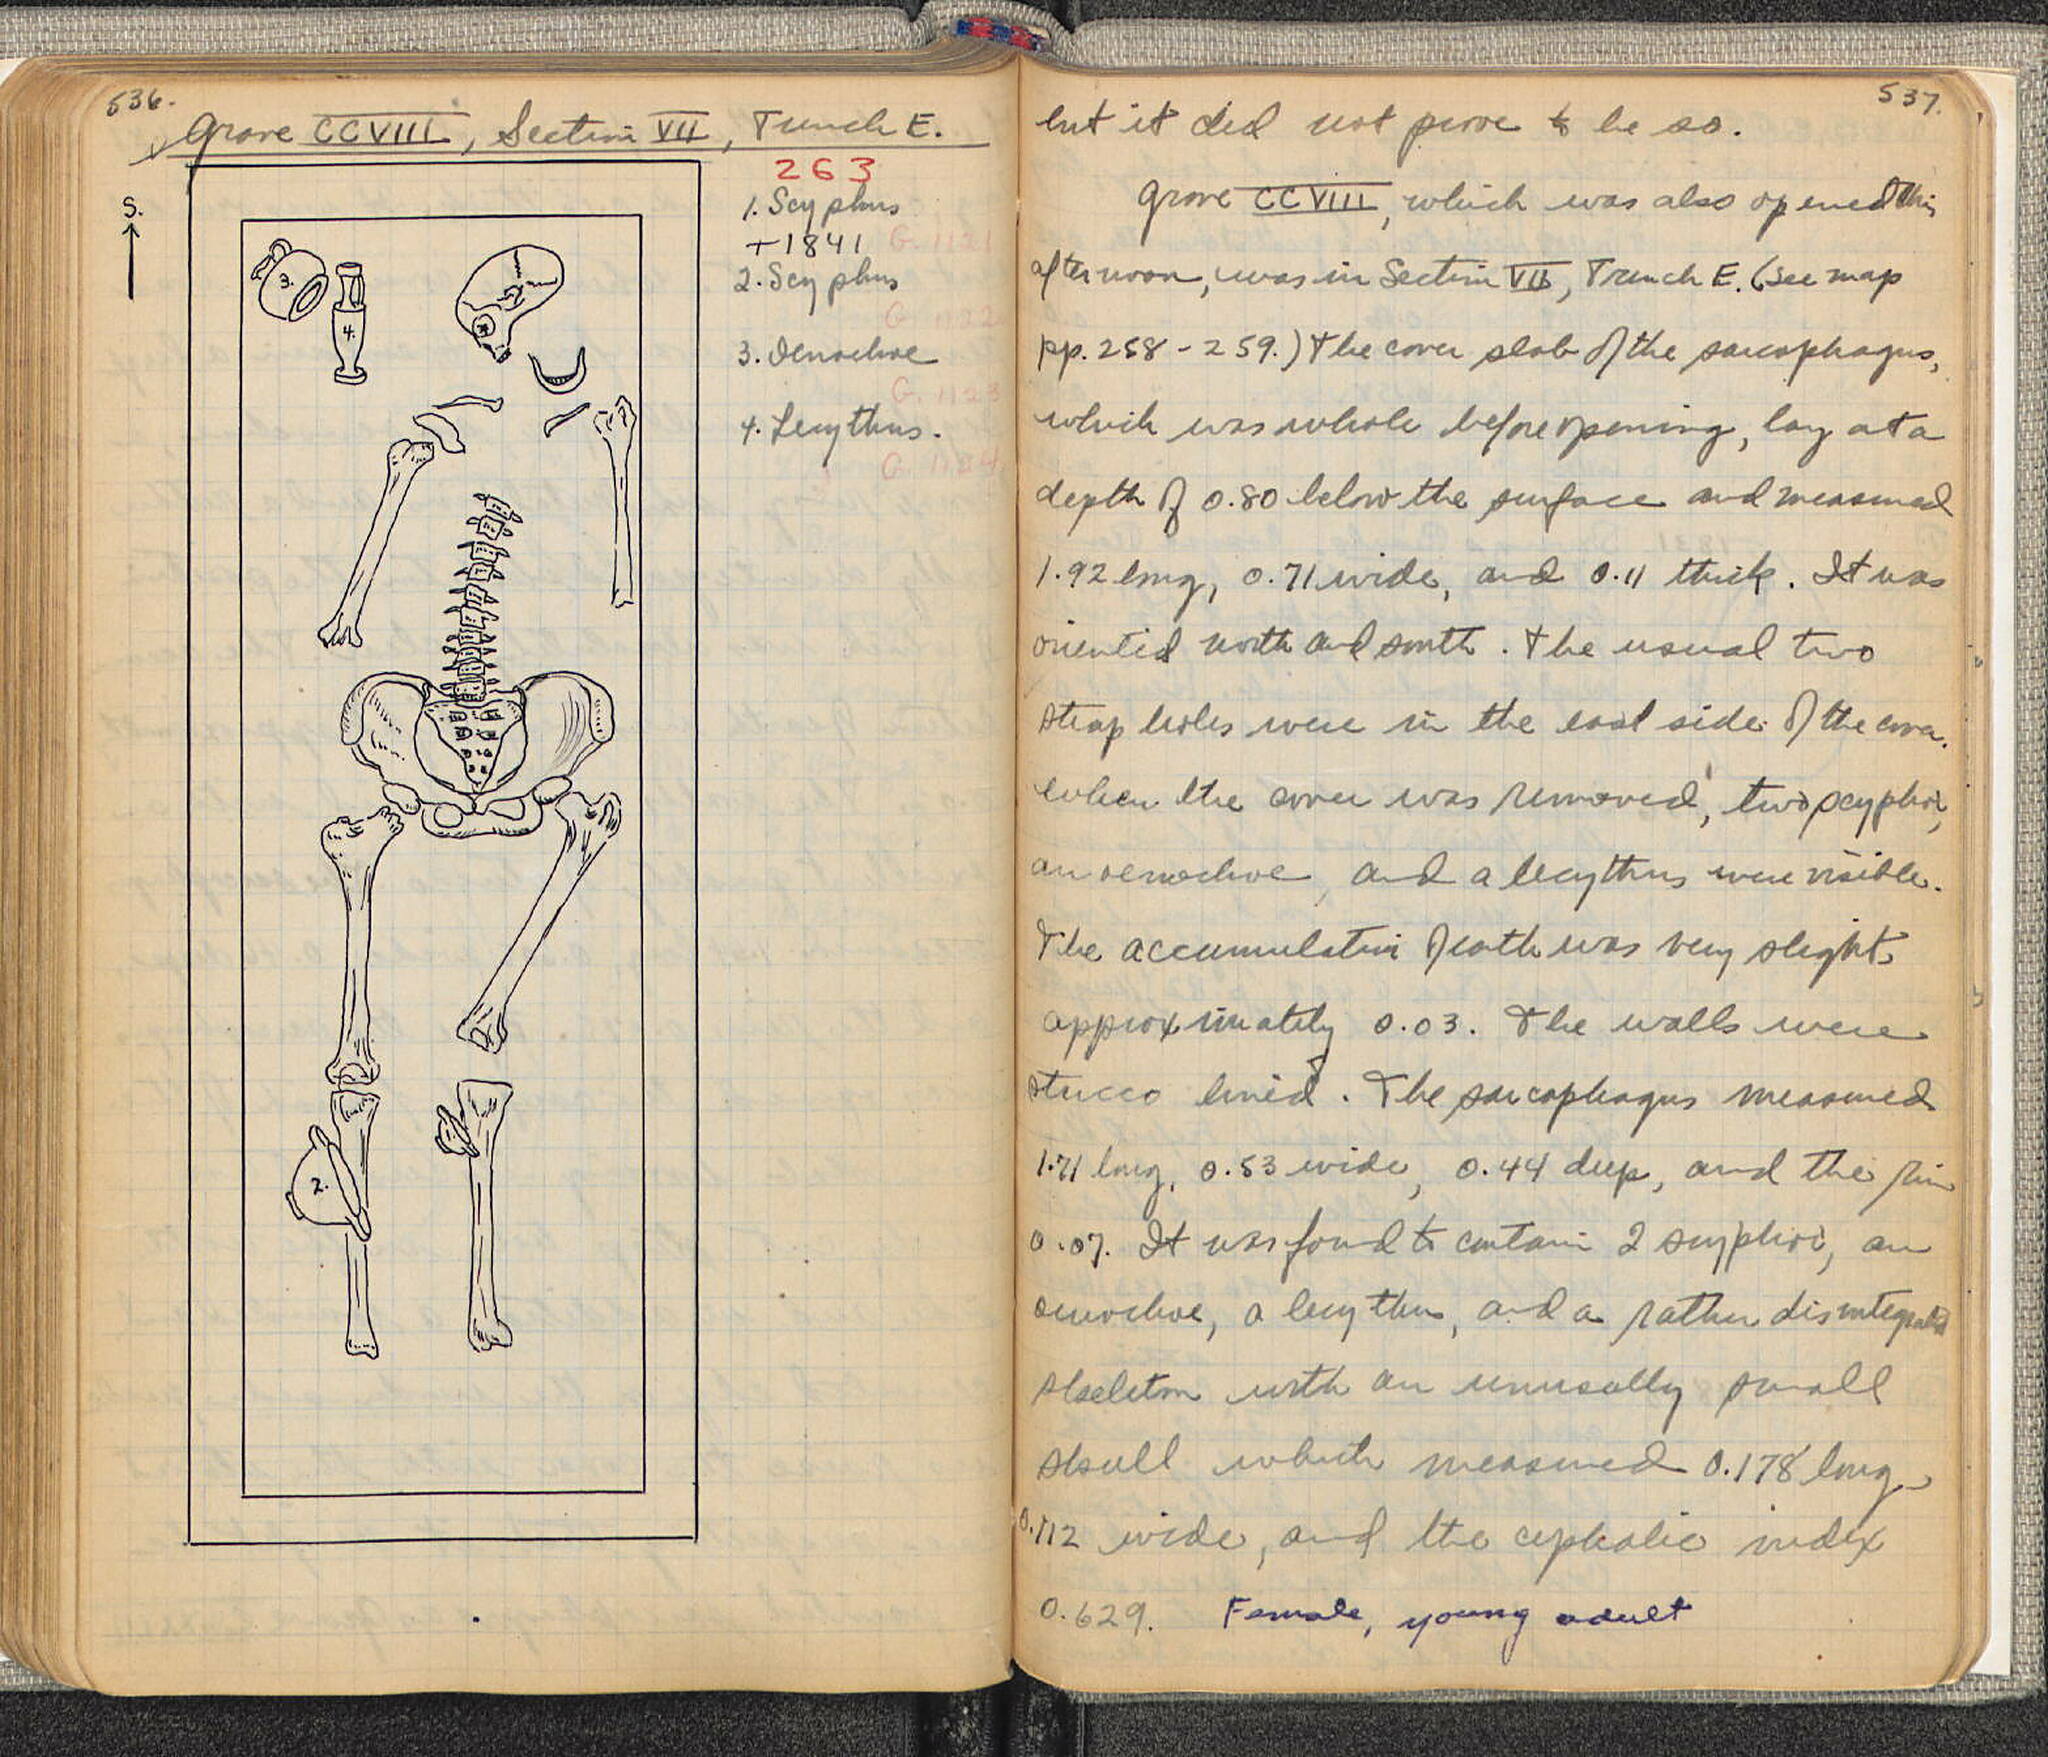 536.
Grave CCVIII, Section VII, Trench E.
263
S.
1. Scyphus
T1841 G. 1121
2. Scyphus
G. 1122
3. Oenochoe
G. 1123
4. Lecythus.
G. 1124
3.
4.
2.
537.
but it did not prove to be so.
Grave CCVIII, which was also opened this
afternoon, was in Section VII, Trench E. (See map
pp. 258-259.) The cover slab of the sarcophagus,
which was whole before opening, lay at a
depth of 0.80 below the surface and measured
1.92 long, 0.71 wide, and 0.11 thick. It was
oriented north and south. The usual two
strap holes were in the east side of the cover.
When the cover was removed, two scyphoi,
an oenochoe, and a lecythus were visible.
The accumulation of earth was very slight
approximately 0.03. The walls were
stucco lined. The sarcophagus measured
1.71 long, 0.53 wide, 0.44 deep, and the rim
0.07. It was found to contain 2 scyphoi, an
oenochoe, a lecythus, and a rather disintegrated
skeleton with an unusally small
skull which measured 0.178 long,
0.112 wide, and the cephalic index
0.629. Female, young adult